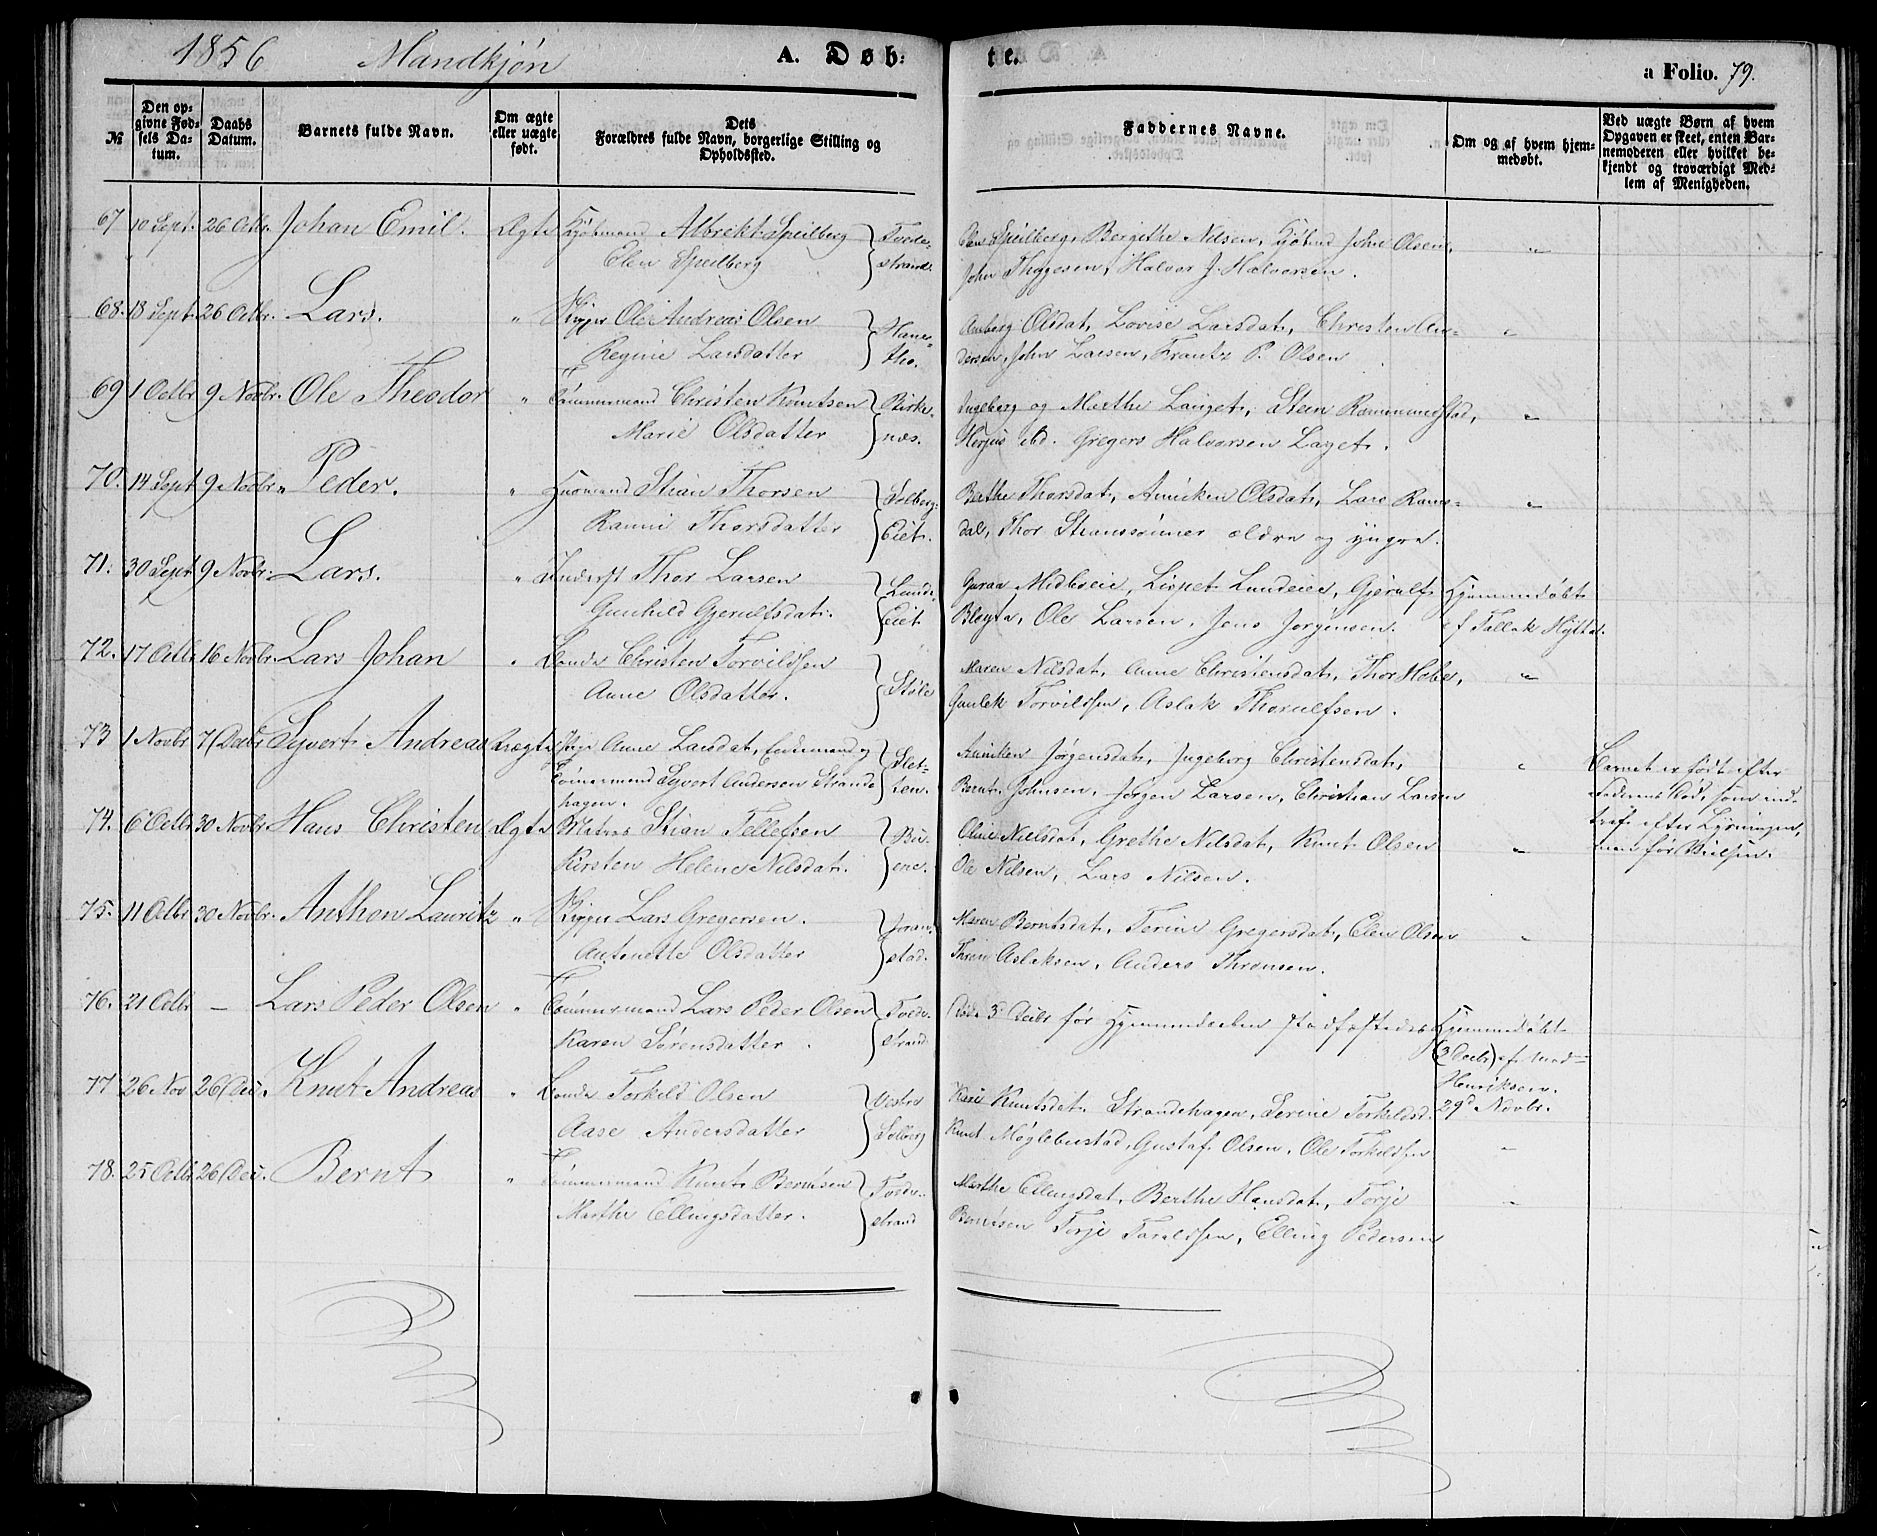 1856 Mandkjøn A. Døb- te. a Folio. 79.
№ Den opgivne Fødsels Datum. Daabs Datum. Barnets fulde Navn. Om ægte eller uægte født. Dets Forældres fulde Navn, borgerlige Stilling og Opholdssted. Faddernes Navne. Om og af hvem hjemmedøbt. Ved uægte Børn af hvem Opgaven er skeet, enten Barnemoderen eller hvilket bekjendt og troværdigt Medlem af Menigheden.
67 10 Sept. 26 Octbr. Johan Emil. Ægte Kjøbmand Albrekt Speilberg Tvede- Elen Speilberg, Bergithe Nilsen, Kjøbmd John Olsen, "
Elen Speilberg strand. John Thygesen, Halvor J. Halvorsen.
68. 13 Sept. 26 Octbr. Lars. " Skipper Ole Andreas Olsen Hanes- Aasberg Olsdat., Lovise Larsdat., Christen An- "
Regine Larsdatter tho. dersen, John Larsen, Frantz P. Olsen
69 1 Octbr 9 Novbr. Ole Theodor " Tømmermand Christen Knutsen Birke- Ingeberg og Marthe Lauget, Steen Rømmundstad, "
Marie Olsdatter næs. ibd. Gregers Halvorsen Laget.
70. 14 Sept 9 Novbr. Peder. " Huusmand Stian Thorsen Solberg- Berthe Thorsdat., Anniken Olsdat., Lars Rams- "
Thorsdatter Eiet. dal, Thor ældre og yngre.
71. 30 Sept 9 Novbr. Lars. " Inderst Thor Larsen Lunde- Guraa Midboeie, Lispet Lundeeie, Gjerulf Hjemmedøbt
Gunhild Gjerulfsdat. Eiet. Bløyta, Ole Larsen, Jens Jørgensen. af Tallak Hytta.
72. 17 Octbr 16 Novbr. Lars Johan " Bonde Christen Torvildsen Støle Maren Nilsdat, Anne Christensdat, Thor Holte, "
Anne Olsdatter. Gunlek Torvildsen, Aslak Thorulfsen.
73 1 Novbr 7/Decbr Syvert Andreas Uægte Pige Anne Larsdat, og Slet- Anniken Jørgensdat, Ingeborg Christensdat, " Barnet er født efter
Tømmermand Syvert Andersen Strande- ten. Bernt Johnsen, Jørgen Larsen, Christian Larsen Faderens Død, som ind-
hagen. traf efter Lysningen,
74. 6 Octbr 30 Novbr Hans Christen Ægte Matros Stian Tellefsen Bu- Oline Nielsdat, Grethe Nilsdat, Knut Olsen " men før Vielsen.
Kirsten Helene Nilsdat. ene. Ole Nilsen, Lars Nilsen.
75. 11 Octbr 30 Novbr. Anthon Lauritz " Skipper Lars Gregersen. Joran- Maren Berntsdat, Terine Gregersdat, Elen Olsen "
Antonette Olsdatter stad. Aslaksen, Anders Thronsen.
76. 21 Octbr — Lars Peder Olsen " Tømmermand Lars Peder Olsen Tvede- Døde 3 Decbr før Hjemmedaaben stadfæstedes Hjemmedøbt
Karen Sørensdatter. strand. (3 Decbr) af Mad-
Henriksen.
77 26 Nov 26/Dec. Knut Andreas " Bonde Torkild Olsen Vestre Kari Knutsdat Strandehagen, Serine Torkildsd. 29d Novbr.
Aase Andersdatter Solberg Knut Møglebustad, Gustaf Olsen, Ole Torkildsen "
78. 25 Octbr 26/Dec. Bernt " Tømmermand Knut Berntsen Tvede- Marthe Ellingsdat, Berthe Hansdat, Torje "
Marthe Ellingsdatter. strand Berntsen Torje Taraldsen, Elling Pedersen